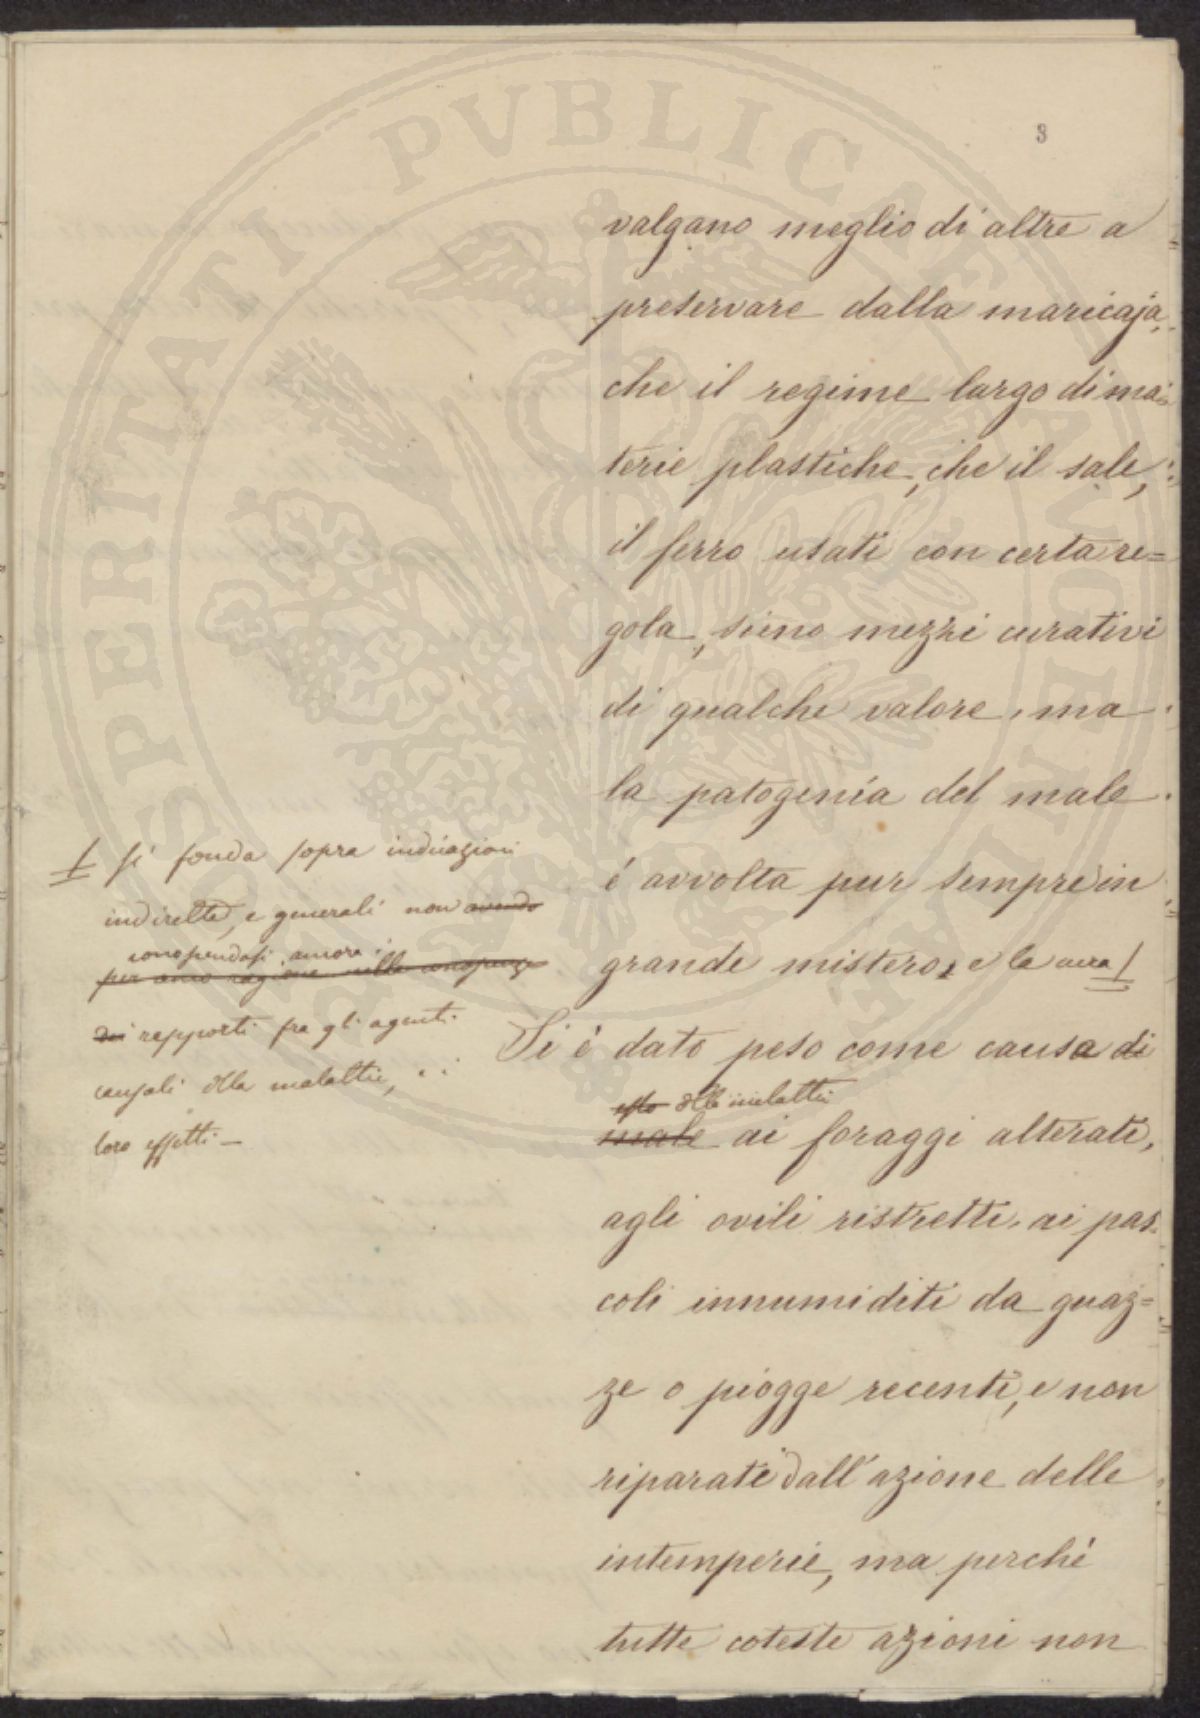 PROSPERITATI PVBLICAE AVGENDAE
8
valgano meglio di altre a
preservare dalla maricaja,
che il regime largo di ma=
terie plastiche, che il sale,
il ferro usati con certa re=
gola, sieno mezzi curativi
di qualche valore, ma
la patogenia del male
é avvolta pur sempre in
grande mistero, e la cura
Si é dato peso come causa di
della malattia
male ai foraggi alterati,
agli ovili ristretti, ai pas
coli innumiditi da guaz=
ze o piogge recenti, e non
riparati dall'azione delle
intemperie, ma perché
tutte coteste azioni non
si fonda sopra induazioni
indirette, e generali non avendo
conoscendosi ancora i
per anco ragione nella conoscenza
dei rapporti fra gli agenti
causali della malattia,
loro effetti —